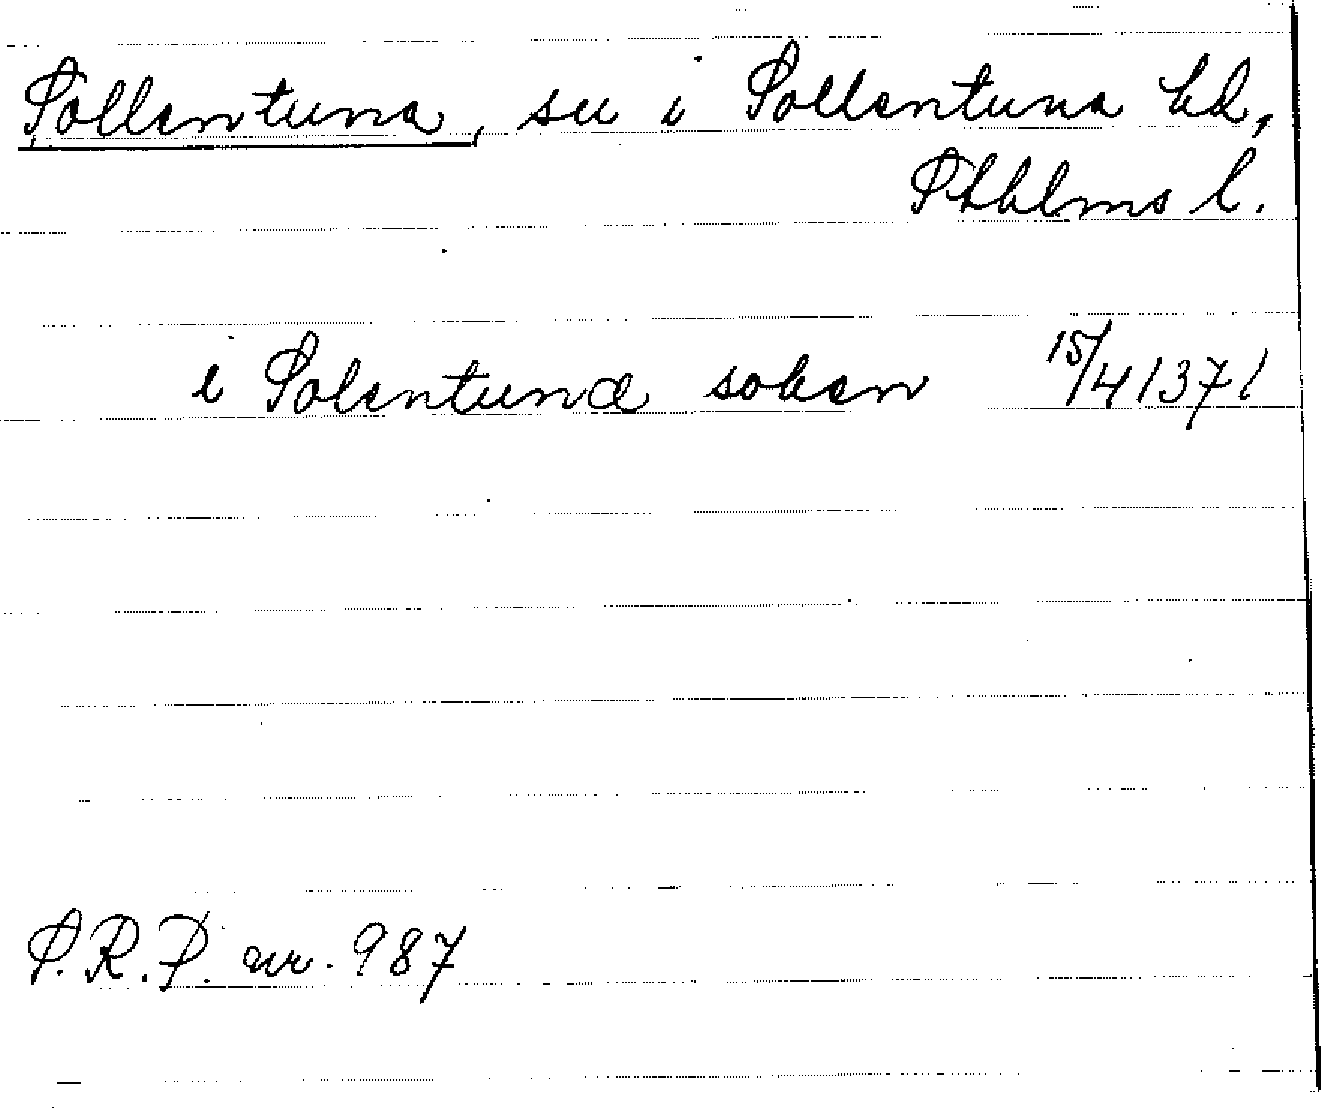 Sollentuna, sn i Sollentuna hd,
Sthlms l.
i Solentuna soken 15/4 1371
S.R.P. nr. 987